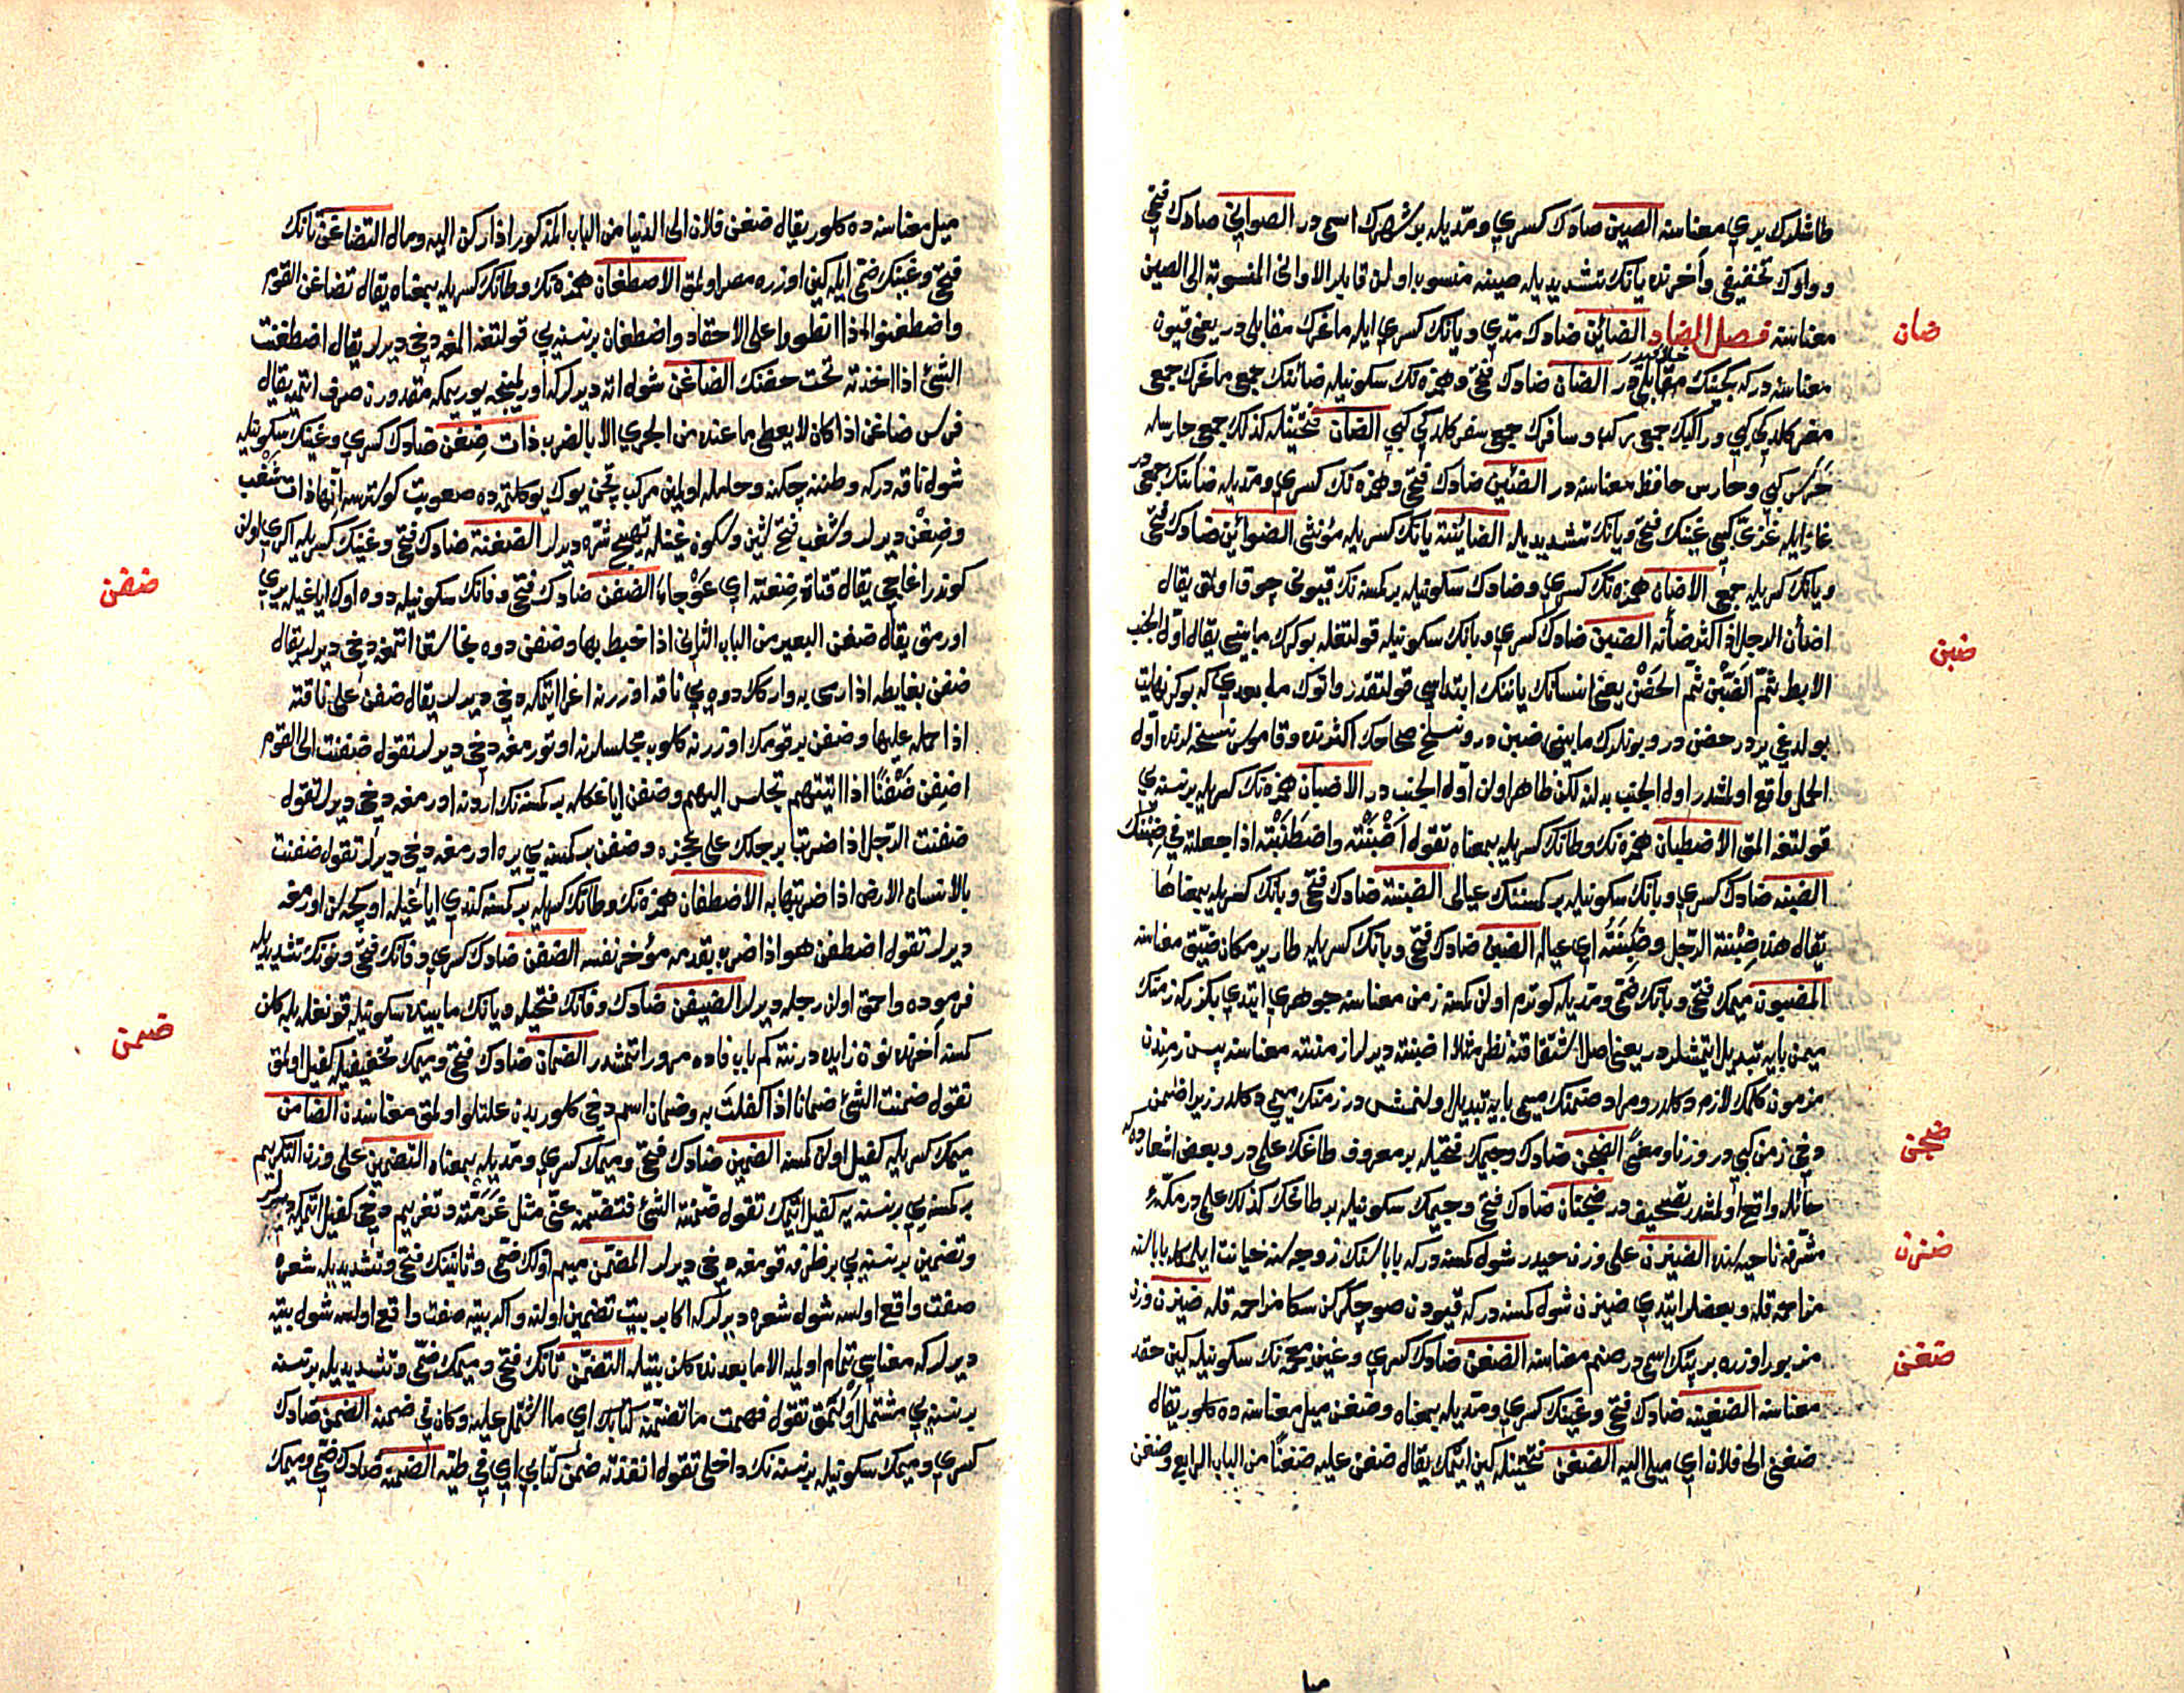 طاشلرك يري معناسنه الصين صادك كسري ومدّيله بر شهرك اسمى در الصوانى صادك فتحى
وواوك تخفيفى وآخرنده يانك تشديديله صينه منسوب اولن قابلر الاوانى المنسوبة الى الصين
معناسنه فصل الضاد الضائن ضادك مدّي ويانك كسري ايله ماعزك مقابلى در يعنى قيون
ضان
معناسنه در كه كچينك مقابلى در الضان ضادك فتحى وهمزه نك سكونيله ضائنك جمعى ماعزك جمعى
خلافيدر
معز كلدكى كبي وراكبك جمعى ركب ومسافرك جمعى سفر كلدكى كبي الضان فتحتينله كذلك جمعى حارسله
حرس كبي وحارس حافظ معناسنه در الضئين ضادك فتحى وهمزه نك كسري ومدّيله ضائنك جمعى در
غاز ايله غزىّ كبي غينك فتحى ويانك تشديديله الضائنة يانك كسريله مؤنثى الضوائن ضادك فتحى
ويانك كسريله جمعى الاضان همزه نك كسري وضادك سكونيله بر كمسنه نك قيونى چوق اولمق يقال
اضأن الرجل اذا كثر ضأنه الضبن ضادك كسري وبانك سكونيله قولتغله بوكرك مابينى يقال اول الجنب
ضبن
الابط ثمّ الضّبن ثمّ الحضن يعنى انسانك ياننك ابتداسى قولتقدر وانوك مابعدي كه بوكر نهايت
بولدغى يردر حضن در وبونلرك مابينى ضبن در ونسخ صحاحك اكثرنده وقاموس نسخه لرنده اوله
الحمل واقع اولمشدر اول الجنب بدلنه لكن ظاهر اولن اول الجنب در الاضبان همزه نك كسريله بر نسنه يي
قولتغه المق الاضطبان همزه نك وطانك كسريله بمعناه تقول أضْبَنْته واضطَبَنْته اذا جعلته فى ضِبْنك
الضبنه ضادك كسري وبانك سكونيله بر كمسننك عيالى الضبنة ضادك فتحى وبانك كسريله بمعناها
يقال هذه ضِبْنة الرجل وضَبِنَتُه اي عياله الضبن ضادك فتحى وبانك كسريله طار ير مكان ضيّق معناسنه
المضبون ميمك فتحى وبانك ضمّى ومدّيله كوترم اولن كمسنه زمن معناسنه جوهري ايتدي بكزر كه زمنك
ميمن بايه تبديل ايتمشلر در يعنى اصل اشتقاقنه نظر مثلا اضبنته ديرلر ازمنته معناسنه پس زمندن
مزمون كلمك لازم دكلدر ومراد ضمنك ميمى بايه تبديل اولنمش در زمنك ميمى دكلدر زيرا ضمن
دخى زمن كبي در وزنا ومعنًى الضجن ضادك وجيمك فتحيله بر معروف طاغك علمى در وبعض اشعارده كه
ضجن
حائله واقع اولمشدر تصحيف در ضجنان ضادك فتحى وجيمك سكونيله بر طاغك كذلك علمى در مكّهٔ
مشرفه ناحيه سنده الضيزن على وزن حيدر شول كمسنه در كه باباسنك زوجه سنه خيانت ايله كله باباسنه
ضزن
مزاحم قله وبعضلر ايتدي ضيزن شول كمسنه در كه قيودن صو چكركن سكا مزاحمه قله ضيزن وزن
مزبور اوزره بر پتك اسمى در صنم معناسنه الضغن ضادك كسري وغين معجمه نك سكونيله كين حقد
ضغن
معناسنه الضغينه ضادك فتحى وغينك كسري ومدّيله بمعناه وضغن ميل معناسنه ده كلور يقال
ضغنى الى فلان اي ميلى اليه الضغن فتحتينله كين ايتمك يقال ضغن عليه ضغنًا من الباب الرابع وضغن
ميل
ميل معناسنه ده كلور يقال ضغن فلان الى الدنيا من الباب المذكور اذا ركن اليه ومال التضاغن تانك
فتحى وغينك ضمّى ايله كين اوزره مصر اولمق الاضطغان همزه نك وطانك كسريله بمعناه يقال تضاغن القوم
واضطغنوا اذا انطووا على الاحقاد واضطغان بر نسنه يي قولتغه المغه دخى ديرلر يقال اضطغنت
الشئ اذا اخذته تحت حضنك الضاغن شول اته ديرلر كه اورلمينجه يوريمكه مقدورن صرف اتمز يقال
فرس ضاغن اذا كان لا يعطى ما عنده من الجري الا بالضرب ذات ضِغن ضادك كسري وغينك سكونيله
شول ناقه در كه وطننه چكنه وحامله اولين مركب يحن يوك يوكلتمده صعوبت كوسترسه انها ذات شغب
وضِغن ديرلر وشغب فتح شين وسكون غينله تهييج شرّه ديرلر الضغنة ضادك فتحى وغينك كسريله اكري اولن
كوندر اغاجى يقال قناة ضغنة اي عَوْجاء الضفن ضادك فتحى وفانك سكونيله دوه اوك اياغيله يري
ضفن
اورمق يقال ضفن البعير من الباب الثانى اذا خبط بها وضفن دوه نجاستن اتمغه دخى ديرلر يقال
ضفن بغايطه اذا رمى به وارككك دوه يي ناقه اوزرنه اغرا ايتمكه دخى ديرلر يقال ضفن على ناقته
اذا حمل عليها وضفن بر قومك اوزرنه كلوب مجلسلرنه اوتورمغه دخى ديرلر تقول ضفنت الى القوم
اضفِن ضَفْنًا اذا اتيتهم تجلس اليهم وضفن اياغكله بر كمسنه نك اردنه اورمغه دخى ديرلر تقول
ضفنت الرجل اذا ضربت برجلك على عجزه وضفن بر كمسنه يي يره اورمغه دخى ديرلر تقول ضفنت
بالانسان الارض اذا ضربتها به الاضطفان همزه نك وطانك كسريله بر كمسنه كندي اياغيله اوكجه سن اورمغه
ديرلر تقول اضطفن هو اذا ضرب بقدمه مؤخر نفسه الضفن ضادك كسري وفانك فتحى ونونك تشديديله
فرموده واحمق اولن رجله ديرلر الضيفن ضادك وفانك فتحيله ويانك مابينده سكونيله قونغله بله كلن
كمسنه آخرنده نون زايده درنته كم باب فاده مرور اتمشدر الضمان ضادك فتحى وميمك تخفيفيله كفيل اولمق
ضمن
تقول ضمنت الشئ ضمانا اذا كفلت به وضمان اسم دخى كلور بدن علتلو اولمق معناسندن الضامن
ميمك كسريله كفيل اولن كمسنه الضمين ضادك فتحى وميمك كسري ومدّيله بمعناه التضمين على وزن التكريم
بر كمسنه يي بر نسنه يه كفيل اتمك تقول ضمّنته الشئ فتضمّنه عنّى مثل غَرّمته وتغريم دخى كفيل اتمكه ديرلر
وتضمين بر نسنه يي بر ظرفه قومغه دخى ديرلر المضمّن ميم اولك ضمّى وثانينك فتحى وتشديديله شعره
صفت واقع اولسه شول شعره ديرلر كه اكا بر بيت تضمين اولنه واكر بيته صفت واقع اولسه شول بيته
ديرلر كه معناسى تمام اولميه الا مابعدنده كلن بيتيله التضمّن تانك فتحى وميمك ضمّى وتشديديله بر نسنه
بر نسنه يي مشتمل اولمق تقول فهمت ما تضمّنه كتابك اي ما اشتمل عليه وكان فى ضمنه الضمن ضادك
كسري وميمك سكونيله بر نسنه نك داخلى تقول انفذته ضمن كتابي اي فى طيّه الضمنه ضادك ضمّى وميمك